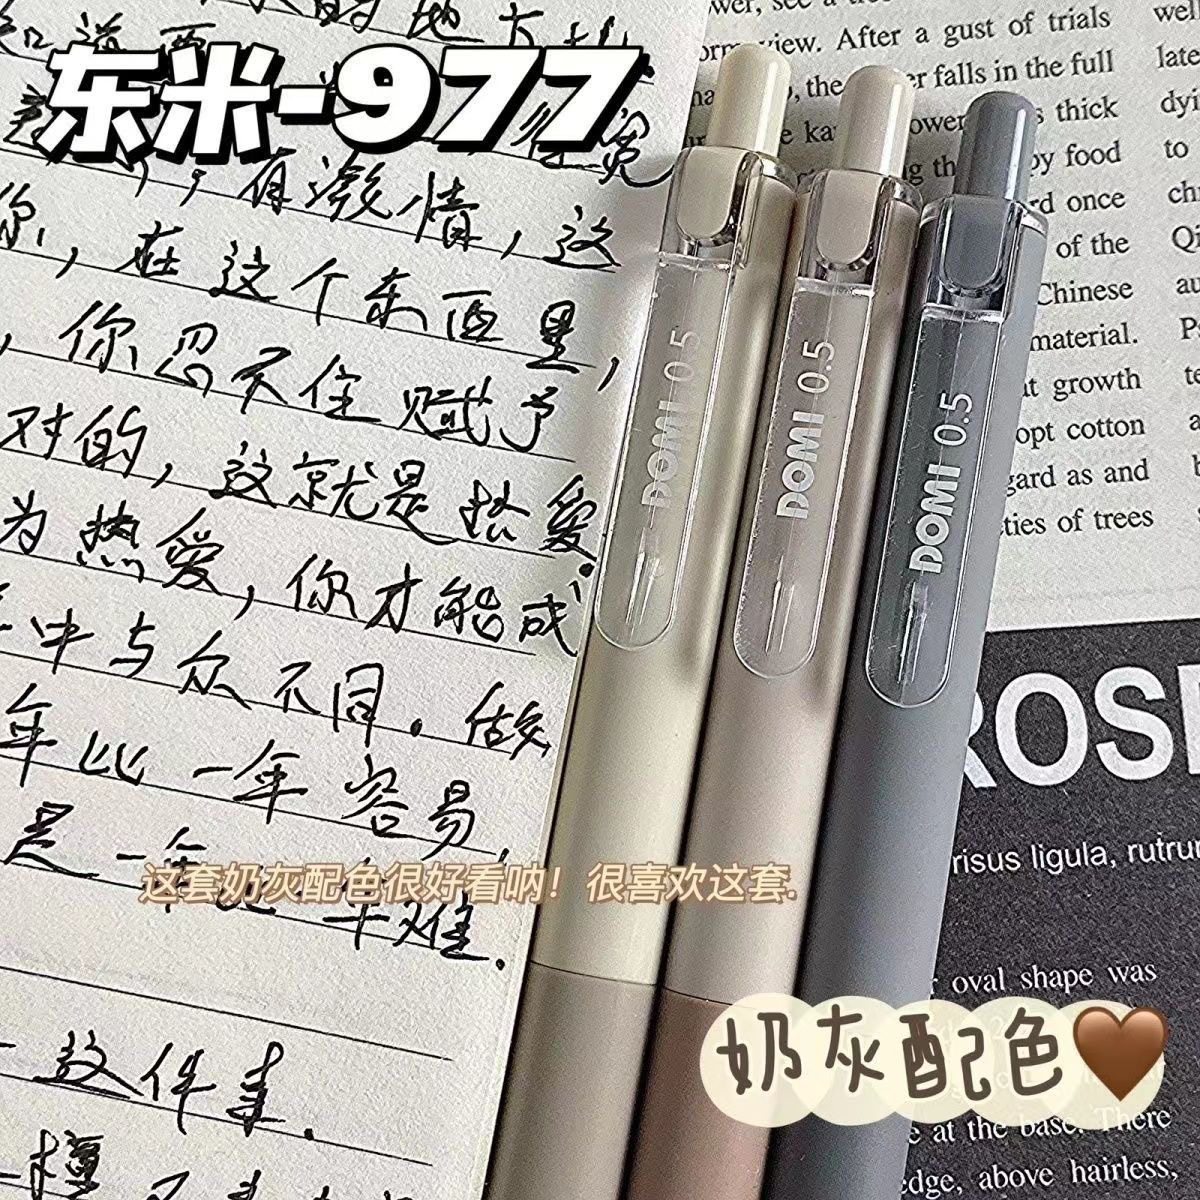 东米-977
有激情，这
你，在这个东西里，
，你忍不住赋予
对的，这就是热爱。
为热爱，你才能成
中与众不同。做
年比一年容易，
是一年比一年难.
这套奶灰配色很好看呐！很喜欢这套.
这件事.
DOMI 0.5
DOMI 0.5
DOMI 0.5
view. After a gust of trials
falls in the full
thick
by food
once
of the
Chinese
material.
growth
opt cotton
gard as and
ties of trees
late
dyi
to
chi
Qi
au
ROSE
risus ligula, rutru
oval shape was
奶灰配色🤎
e at the base. There
edge, above hairless,